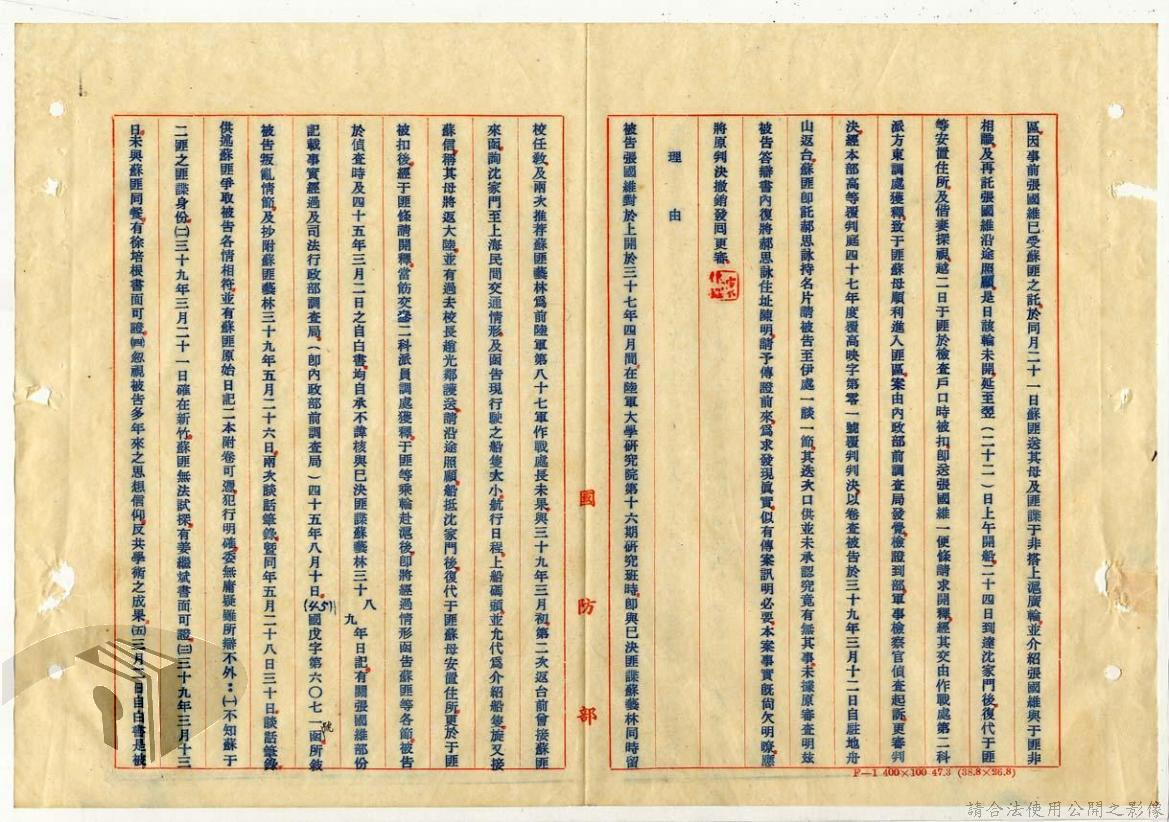 區因事前張國維已受蘇匪之託於同月二十一日蘇匪送其母及匪諜于非搭上滬廣輪並介紹張國維與于匪非
相識及再託張國維沿途照顧是日該輪未開延至翌（二十二）日上午開船二十四日到達沈家門後復代于匪
等安置住所及偕妻探視越二日于匪於檢查戶口時被扣即送張國維一便條請求開釋經其交由作戰處第二科
派方東調處獲釋致于匪蘇母順利進入匪區案由內政部前調查局發覺檢證到部軍事檢察官偵查起訴更審判
決經本部高等覆判庭四十七年度覆高映字第零一號覆判判決以卷查被告於三十九年三月十二日自駐地舟
山返台蘇匪即託郝思詠持名片請被告至伊處一談一節其迭次口供並未承認究竟有無其事未據原審查明茲
被告答辯書內復將郝思詠住址陳明請予傳證前來為求發現眞實似有傳案訊明必要本案事實既尚欠明瞭應
將原判決撤銷發回更審
理由
被告張國維對於上開於三十七年四月間在陸軍大學研究院第十六期研究班時即與已決匪諜蘇藝林同時留
校任教及兩次推荐蘇匪藝林為前陸軍第八十七軍作戰處長未果與三十九年三月初第二次返台前會接蘇匪
來函詢沈家門至上海民間交通情形及函告現行駛之船隻大小航行日程上船碼頭並允代為介紹船隻旋又接
蘇信稱其母將返大陸並有過去校長趙光鄰護送請沿途照顧船抵沈家門後復代于匪蘇母安置住所更於于匪
被扣後經于匪條請開釋當飭交二科派員調處獲釋于匪等乘輪赴滬後即將經過情形函告蘇匪等各節被告
於偵查時及四十五年三月二日之自白書均自承不諱核與已決匪諜蘇藝林三十八九年日記有關張國維部份
記載事實經過及司法行政部調查局（即內政部前調查局）四十五年八月十日(45)國戊字第六〇七一號函所敘
被告叛亂情節及抄附蘇匪藝林三十九年五月二十六日兩次談話筆錄暨同年五月二十八日三十日談話筆錄
供述蘇匪爭取被告各情相符並有蘇匪原始日記二本附卷可憑犯行明確委無庸疑雖所辯不外：㈠不知蘇于
二匪之匪諜身份㈡三十九年三月二十一日確在新竹蘇匪無法試探有姜繼斌書面可證㈢三十九年三月十三
日未與蘇匪同餐有徐培根書面可證㈣忽視被告多年來之思想信仰反共學術之成果㈤三月二日自白書是被
國防部
F—1 400×100 47.3 (38.8×26.8)
請合法使用公開之影像